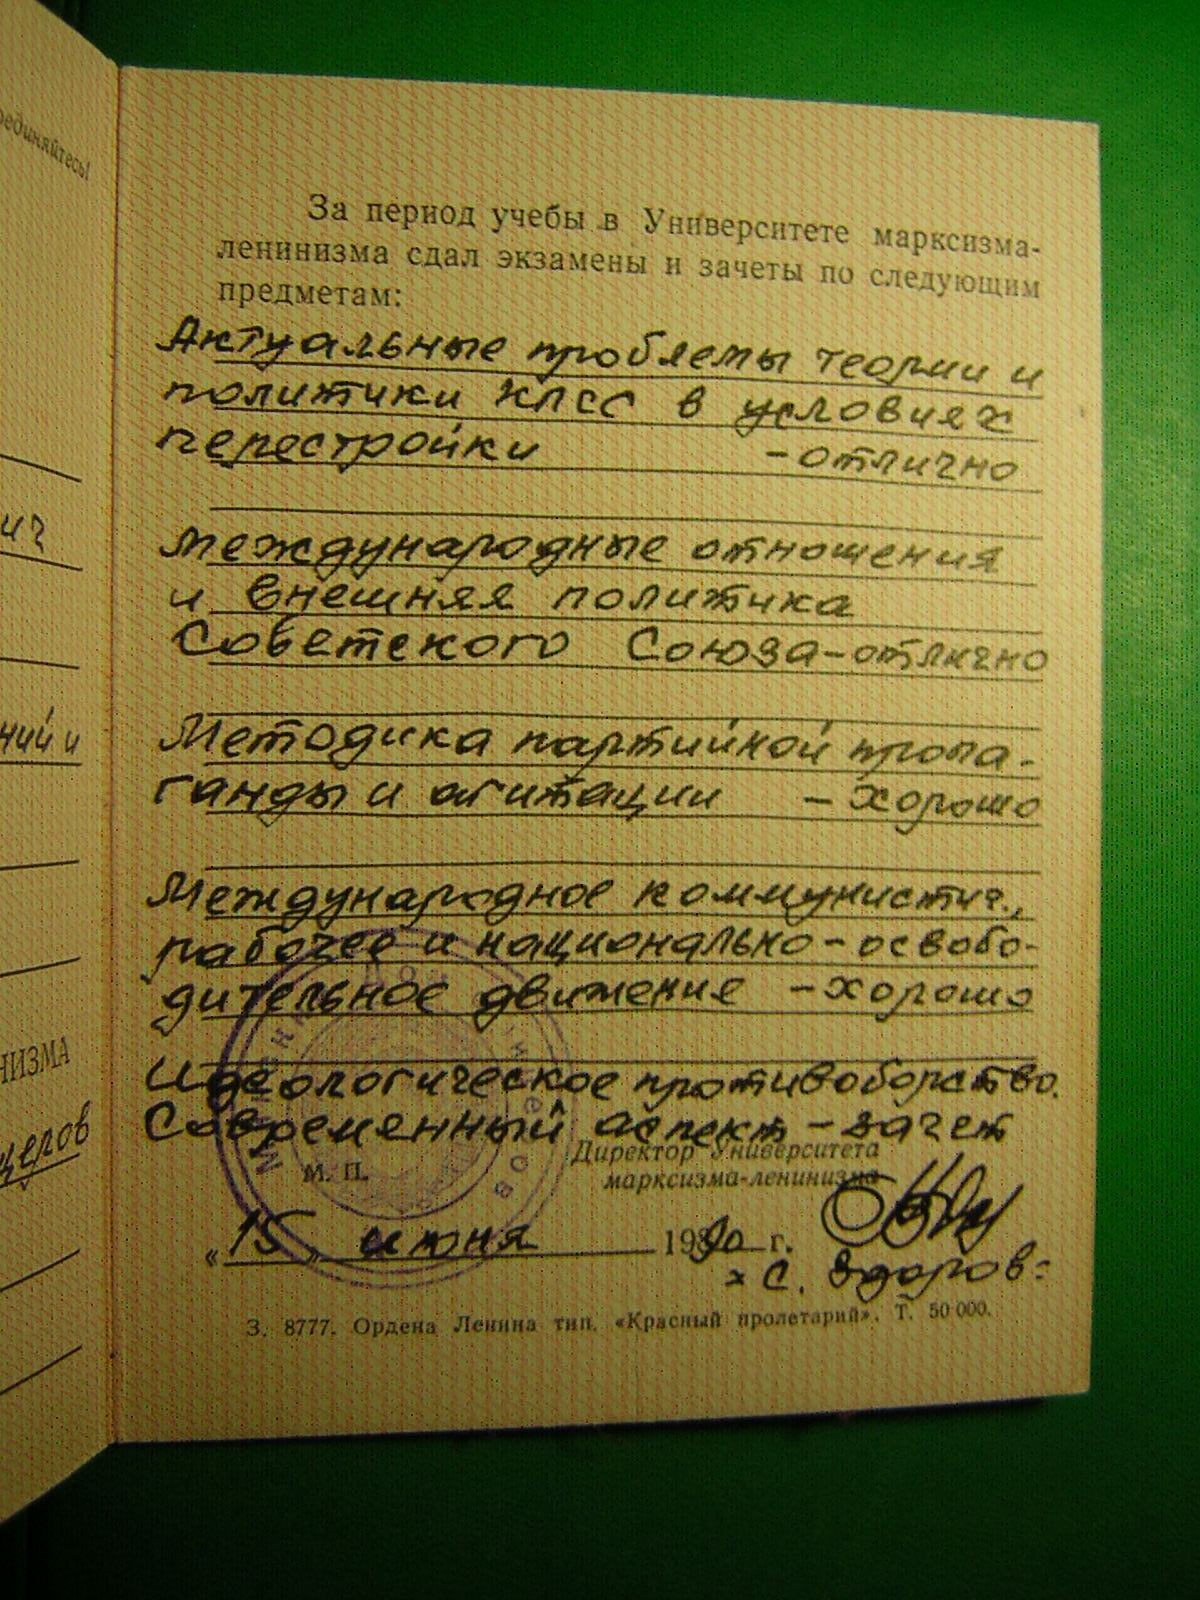 единяйтесь!
ич
ний и
НИЗМА
церов
За период учебы в Университете марксизма-
ленинизма сдал экзамены и зачеты по следующим
предметам:
Актуальные проблемы теории и
политики КПСС в условиях
перестройки -отлично
Международные отношения
и внешняя политика
Советского Союза-отлично
Методика партийной пропа-
ганды и агитации - хорошо
Международное коммунистич.,
рабочее и национально-освобо-
дительное движение -хорошо
Идеологическое противоборство.
Современный аспект -зачет
Директор Университета
марксизма-ленинизма
М. П.
«15» июня 1990 г.
С. Здоров
З. 8777. Ордена Ленина тип. «Красный пролетарий». Т. 50 000.